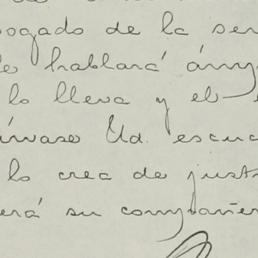 bogado de la ser
le hablará ámp
lo lleva y el e
ívase Ud. escuc
lo crea de just
erá su compañer